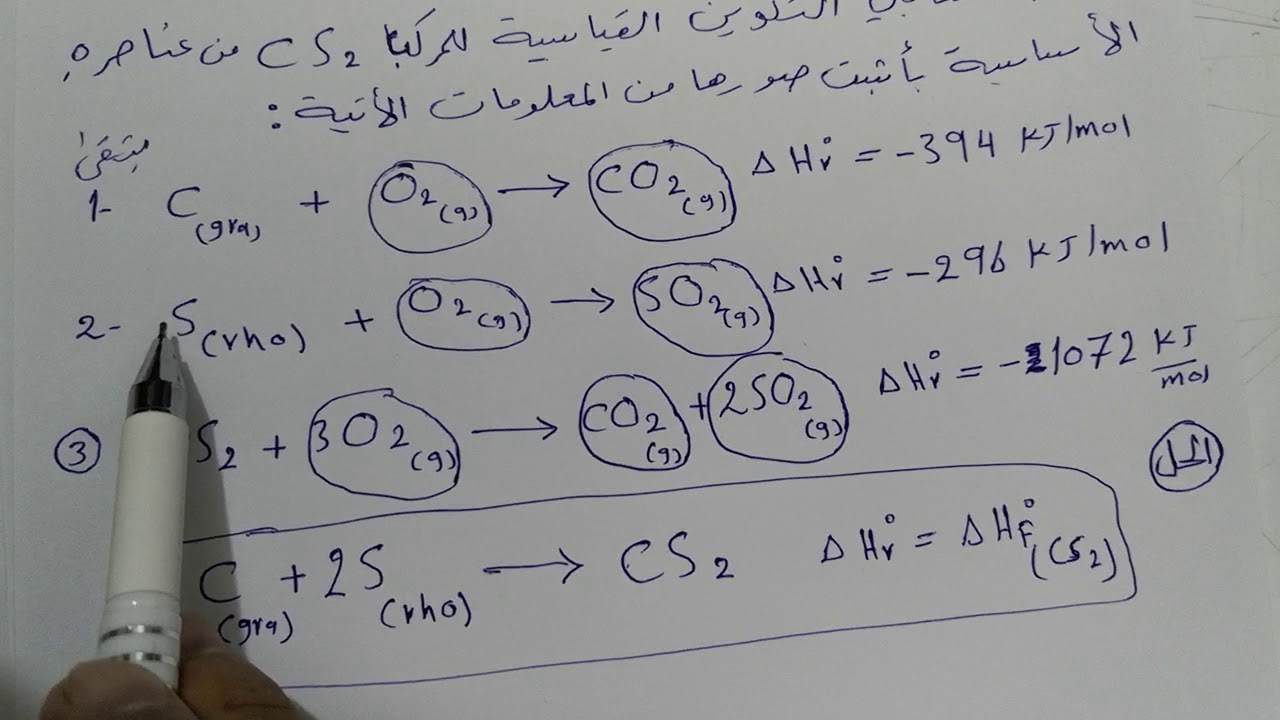 التكوين القياسية للمركب CS₂ من عناصره
الأساسية بأثبت صورها من المعلومات الآتية :
1- C(gra) + O₂(g) → CO₂(g) ΔHr° = -394 KJ/mol
2- S(rho) + O₂(g) → SO₂(g) ΔHr° = -296 KJ/mol
③ S₂ + 3O₂(g) → CO₂(g) + 2SO₂(g) ΔHr° = -1072 KJ/mol
الحل
C(gra) + 2S(rho) → CS₂ ΔHr° = ΔHf°(CS₂)